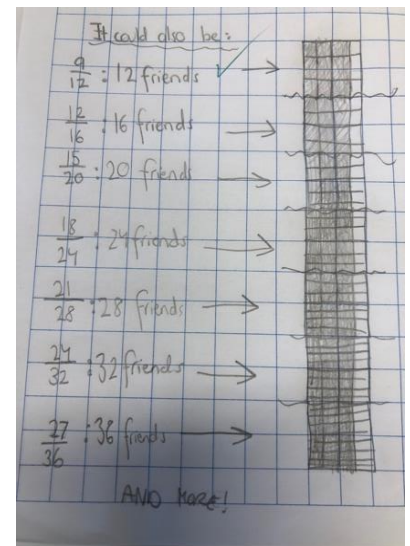 It could also be:
9/12 : 12 friends ✓
12/16 : 16 friends
15/20 : 20 friends
18/24 : 24 friends
21/28 : 28 friends
24/32 : 32 friends
27/36 : 36 friends
AND MORE!